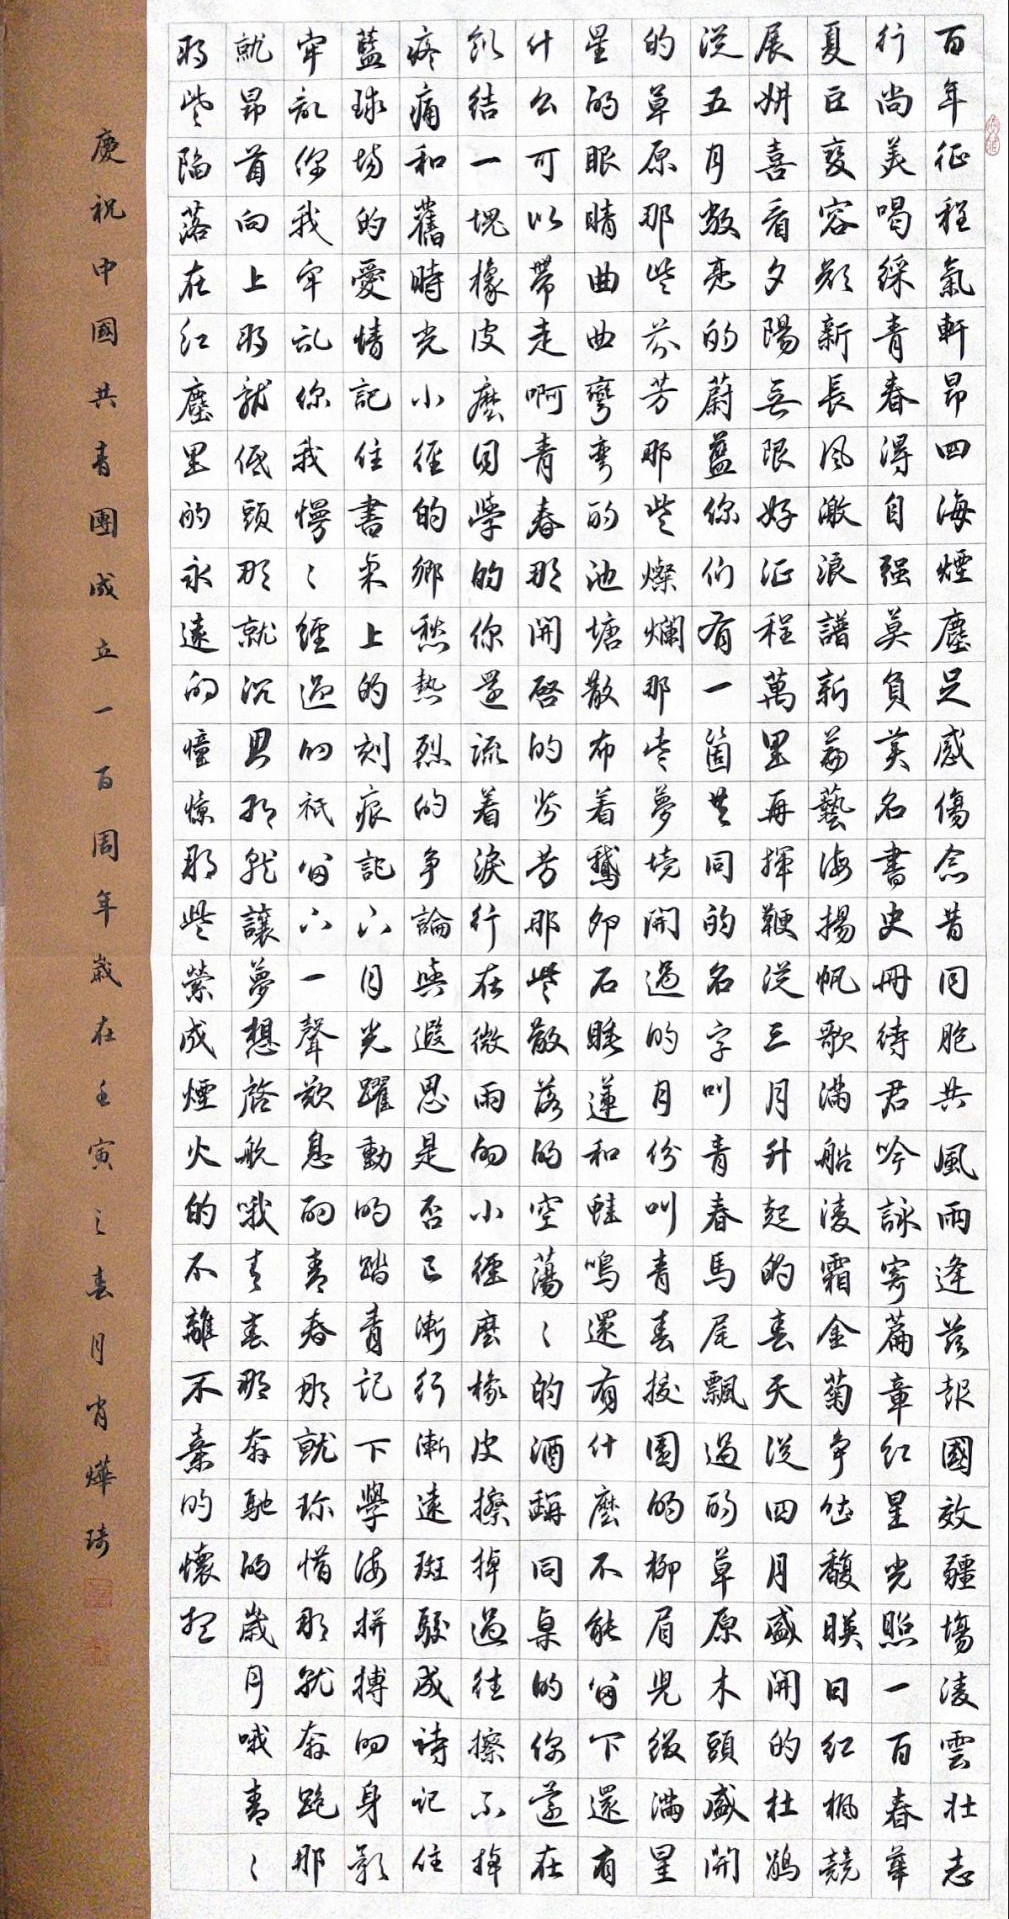 百年征程氣軒昂四海煙塵足感傷念昔同胞共風雨逢茲報國效疆場凌雲壯志
行尚美喝綵青春得自强莫負英名書史冊待君吟詠寄篇章紅星光照一百春華
夏巨變容顏新長風激浪譜新篇藝海揚帆歌滿船凌霜金菊爭吐馥暎日紅楓競
展妍喜看夕陽無限好征程萬里再揮鞭從三月升起的春天從四月盛開的杜鵑
從五月敞亮的蔚藍你們有一箇共同的名字叫青春馬尾飄過的草原木頭盛開
的草原那些芬芳那些燦爛那些夢境開過的月份叫青春校園的柳眉兒綴滿星
星的眼睛曲曲彎彎的池塘散布着鵝卵石睡蓮和蛙鳴還有什麼不能留下還有
什么可以帶走啊青春那開啓的芬芳那些散落的空蕩〻的酒窩同桌的你還在
糾結一塊橡皮麼同學的你還流着淚行在微雨的小徑麼橡皮擦掉過往擦不掉
疼痛和舊時光小徑的鄉愁熱烈的爭論與遐思是否已漸行漸遠斑駁成詩記住
藍球場的愛情記住書桌上的刻痕記下月光躍動的踏青記下學海拼搏的身影
牢記你我牢記你我慢〻經過的祇留下一聲歎息的青春那就珍惜那就奔跑那
就昂首向上那就低頭那就沉思那就讓夢想啓航哦青春那奔馳的歲月哦青〻
那些陷落在紅塵里的永遠的憧憬那些縈成煙火的不離不棄的懷想
慶祝中國共青團成立一百周年歲在壬寅之春月肖燁琦